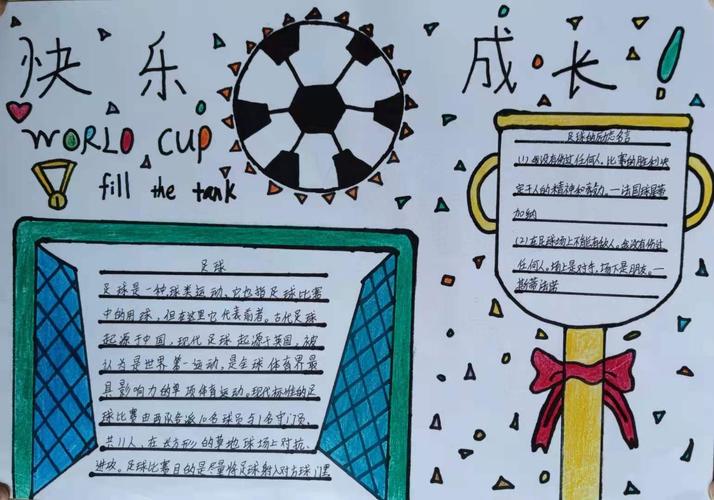 快乐
成长!
WORLD CUP
fill the tank
足球
足球是一种球类运动、它也指足球比赛
中的用球，但在这里它代表前者。古代足球
起源于中国，现代足球起源于英国，被
认为是世界第一运动，是全球体育界最
具影响力的单项体育运动。现代标准的足
球比赛由两队各派10名球员与1名守门员，
共11人，在长方形的草地球场上对抗、
进攻。足球比赛目的是尽量将足球射入对方球门里
足球的励志名言
(1) 我没有伤过任何人，比赛的胜利决
定于人的精神和努力。一法国球星
加纳
(2) 在足球场上不能有敌人。我没有伤过
任何人，场上是对手，场下是朋友。一
斯蒂法诺